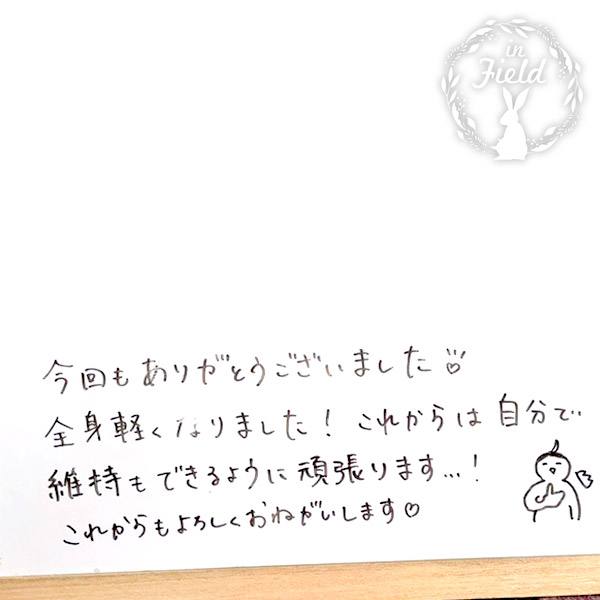 in
Field
今回もありがとうございました♡
全身軽くなりました！これからは自分で
維持もできるように頑張ります…！
これからもよろしくおねがいします♡